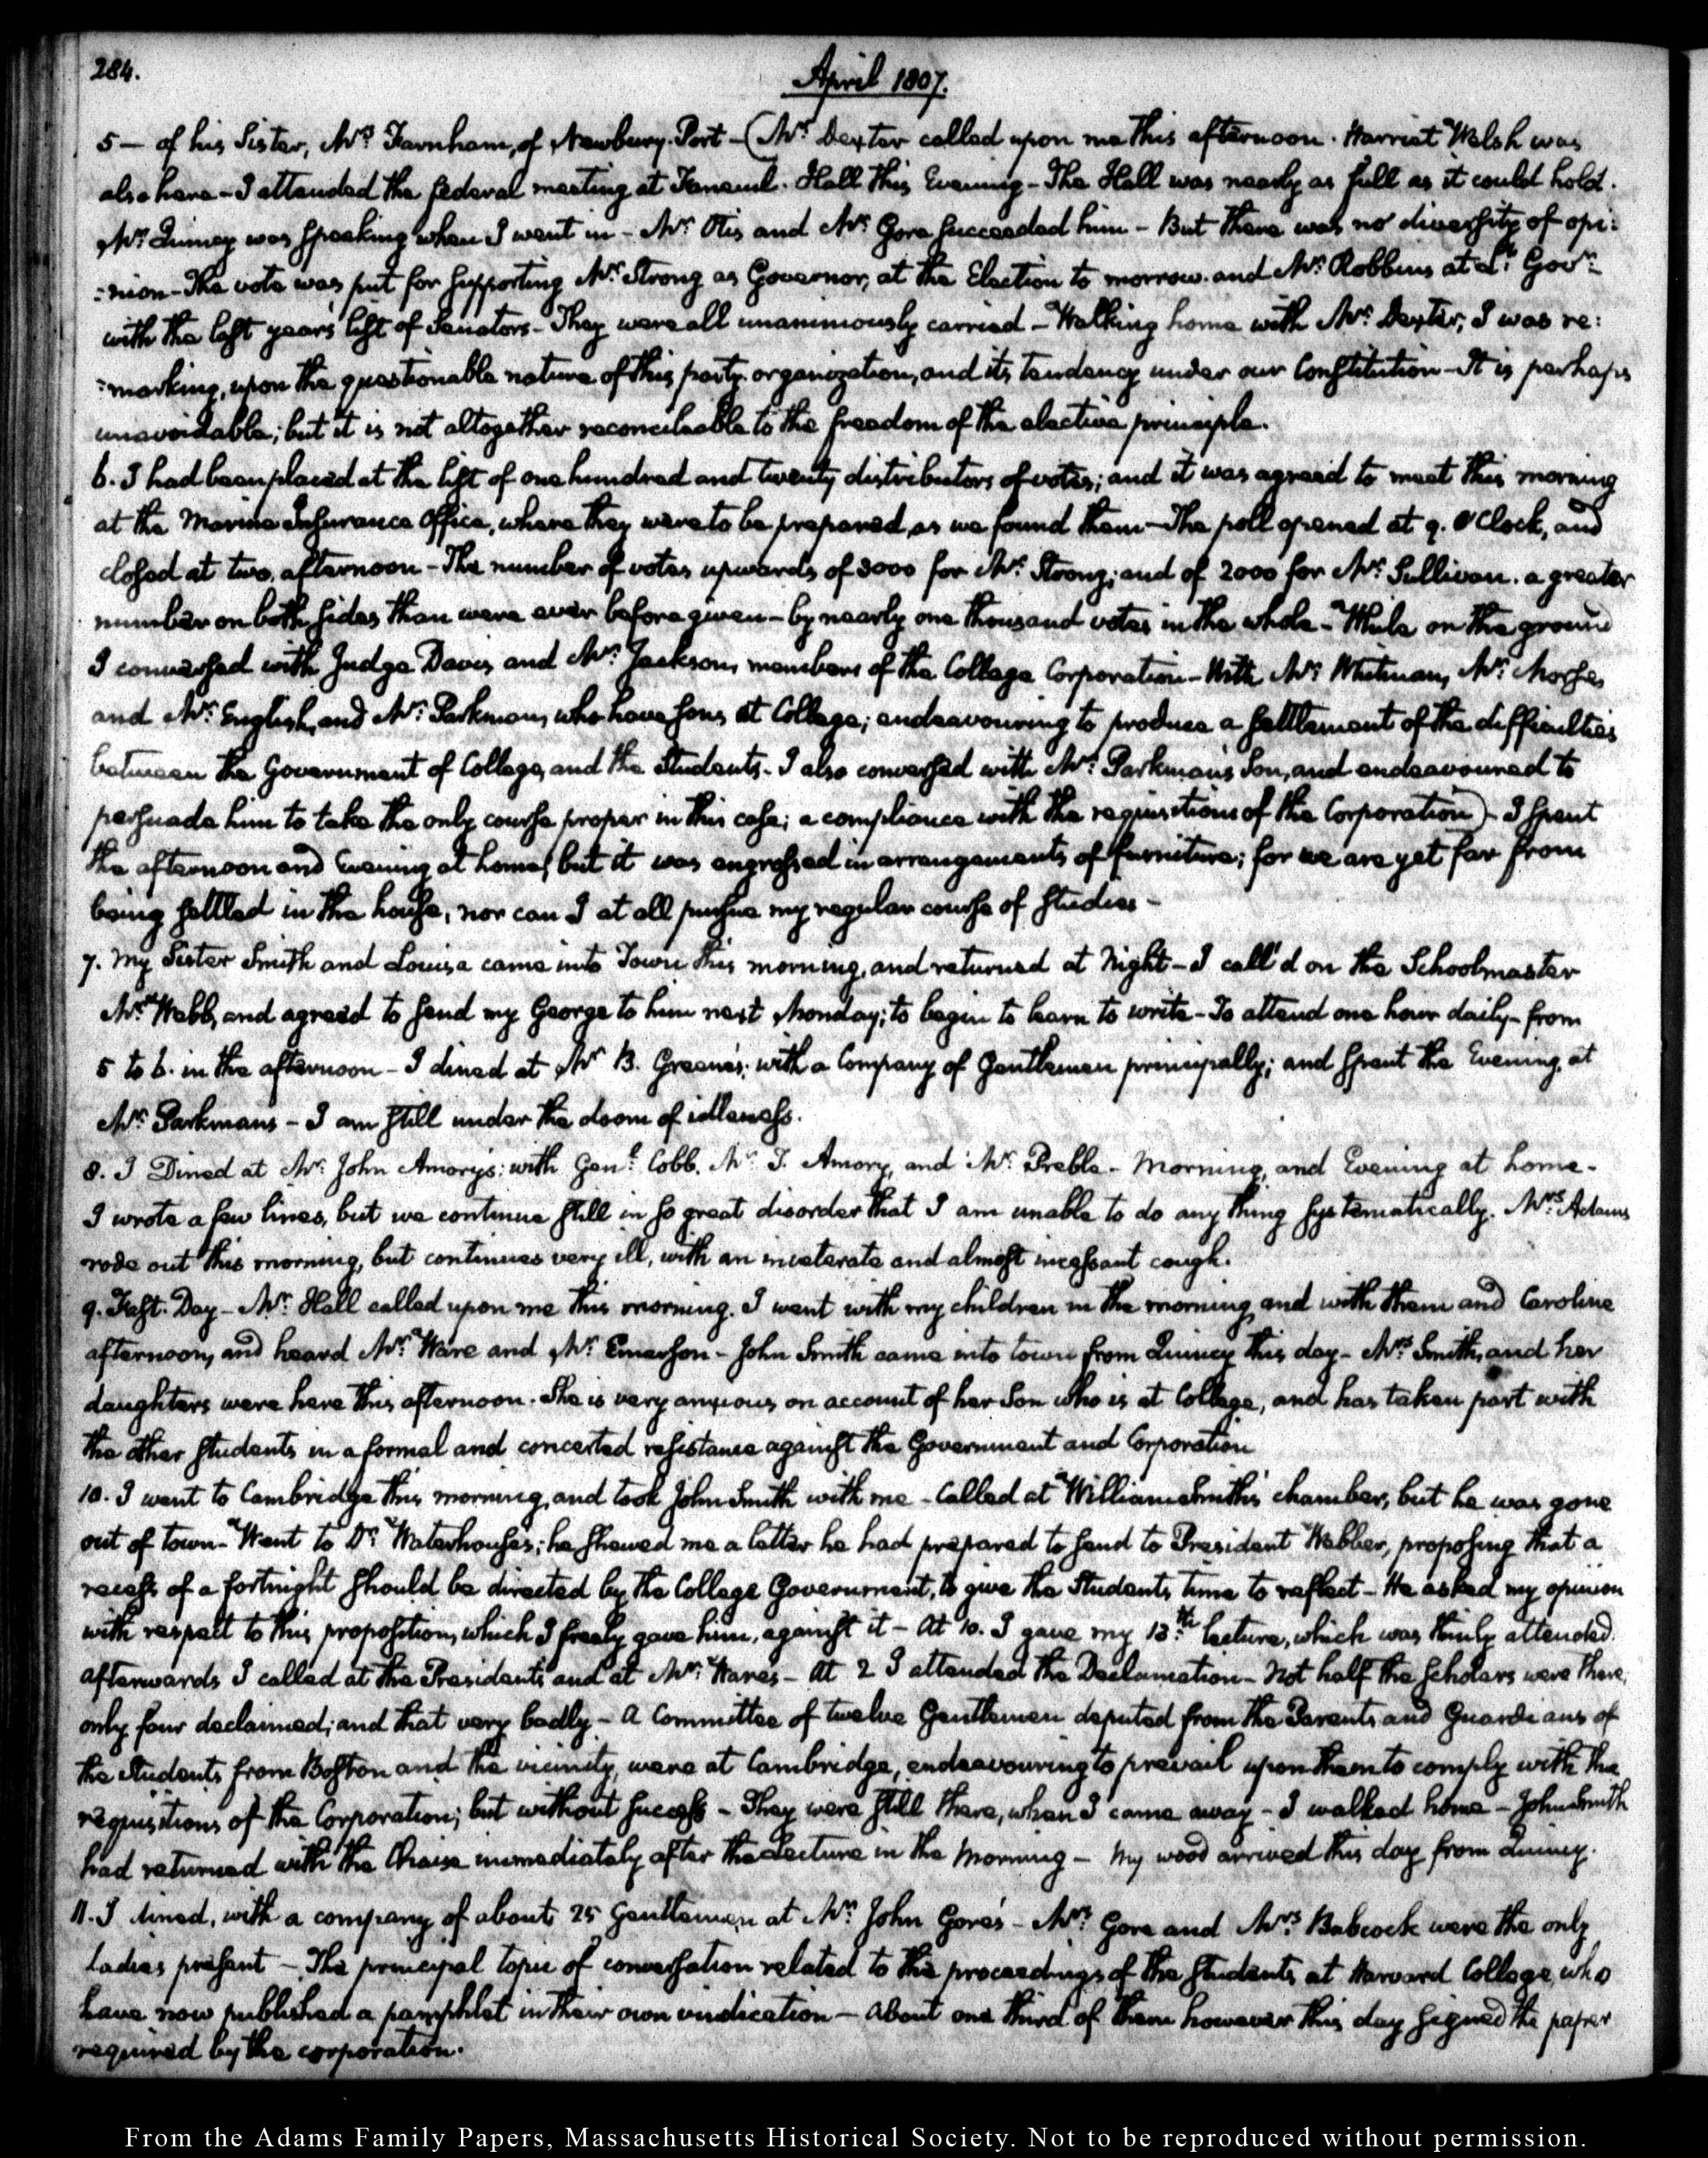 284.
April 1807.
5 — of his Sister, Mrs Farnham, of Newbury-Port — (Mr. Dexter called upon me this afternoon. Harriet Welsh was
also here — I attended the federal meeting at Faneuil-Hall this Evening — The Hall was nearly as full as it could hold.
Mr. Quincy was speaking when I went in — Mr. Otis and Mr. Gore succeeded him — But there was no diversity of opi:
:nion — The vote was put for supporting Mr. Strong as Governor, at the Election to morrow. and Mr. Robbins at Lt. Govr.
with the last years list of Senators — They were all unanimously carried — Walking home with Mr. Dexter, I was re:
:marking, upon the questionable nature of this party organization, and its tendency under our Constitution — It is perhaps
unavoidable; but it is not altogether reconcileable to the freedom of the elective principle.
6. I had been placed at the list of one hundred and twenty distributors of votes; and it was agreed to meet this morning
at the Marine Insurance Office, where they were to be prepared, as we found them — The poll opened at 9. O'Clock, and
closed at two, afternoon — The number of votes upwards of 3000 for Mr. Strong; and of 2000 for Mr. Sullivan. a greater
number on both sides than were ever before given — by nearly one thousand votes in the whole — While on the ground
I conversed with Judge Davis and Mr. Jackson, members of the College Corporation — With Mr. Whitman, Mr. Morse,
and Mr. English, and Mr. Parkman, who have sons at College; endeavouring to produce a settlement of the difficulties
between the Government of College, and the Students — I also conversed with Mr. Parkman's son, and endeavoured to
persuade him to take the only course proper in this case; a compliance with the requisitions of the Corporation) — I spent
the afternoon and Evening at home, but it was engrossed in arrangements of furniture; for we are yet far from
being settled in the house, nor can I at all pursue my regular course of studies —
7. My Sister Smith and Louisa came into Town this morning, and returned at Night — I call'd on the Schoolmaster
Mr. Webb, and agreed to send my George to him next Monday; to begin to learn to write — To attend one hour daily — from
5 to 6. in the afternoon — I dined at Mr B. Greene's; with a Company of Gentlemen principally; and spent the Evening, at
Mr. Parkmans — I am still under the doom of idleness.
8. I Dined at Mr. John Amory's: with Genl. Cobb. Mr. J. Amory, and Mr. Preble — Morning, and Evening at home —
I wrote a few lines, but we continue still in so great disorder that I am unable to do any thing systematically. Mrs. Adams
rode out this morning, but continues very ill, with an inveterate and almost incessant cough.
9. Fast-Day — Mr. Hall called upon me this morning. I went with my children in the morning, and with them and Caroline
afternoon, and heard Mr. Ware and Mr. Emerson — John Smith came into town from Quincy this day — Mrs Smith, and her
daughters were here this afternoon. She is very anxious on account of her Son who is at College, and has taken part with
the other students in a formal and concerted resistance against the Government and Corporation
10. I went to Cambridge this morning, and took John Smith with me — Called at William Smith's chamber, but he was gone
out of town — Went to Dr. Waterhouse's; he shewed me a letter he had prepared to send to President Webber, proposing that a
recess of a fortnight should be directed by the College Government, to give the Students time to reflect — He asked my opinion
with respect to this proposition, which I freely gave him, against it — At 10. I gave my 13th. lecture, which was thinly attended.
afterwards I called at the Presidents and at Mr. Wares — At 2 I attended the Declamation — Not half the Scholars were there,
only four declaimed; and that very badly — A Committee of twelve Gentlemen deputed from the Parents and Guardians of
the students from Boston and the vicinity, were at Cambridge, endeavouring to prevail upon them to comply with the
requisitions of the Corporation; but without success — They were still there, when I came away — I walked home — John Smith
had returned with the Chaise immediately after the Lecture in the Morning — My wood arrived this day from Quincy.
11. I dined, with a company of about 25 Gentlemen at Mr. John Gore's — Mrs. Gore and Mrs. Babcock were the only
Ladies present — The principal topic of conversation related to the proceedings of the students at Harvard College, who
have now published a pamphlet in their own vindication — about one third of them however this day signed the paper
required by the corporation.
From the Adams Family Papers, Massachusetts Historical Society. Not to be reproduced without permission.